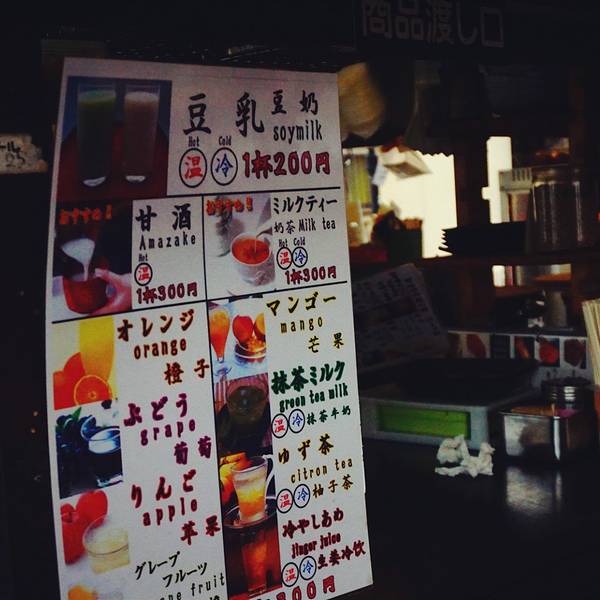 商品渡し口
豆乳 豆奶
soymilk
Hot Cold
温 冷 1杯200円
おすすめ!
甘酒
Amazake
Hot
温
1杯300円
おすすめ!
ミルクティー
奶茶Milk tea
Hot Cold
温 冷
1杯300円
オレンジ
orange
橙子
マンゴー
mango
芒果
ぶどう
grape
葡萄
抹茶ミルク
green tea milk
温 冷 抹茶牛奶
りんご
apple
苹果
ゆず茶
citron tea
温 冷 柚子茶
グレープ
フルーツ
fruit
冷やしあめ
jinger juice
温 冷 生姜冷饮
300円